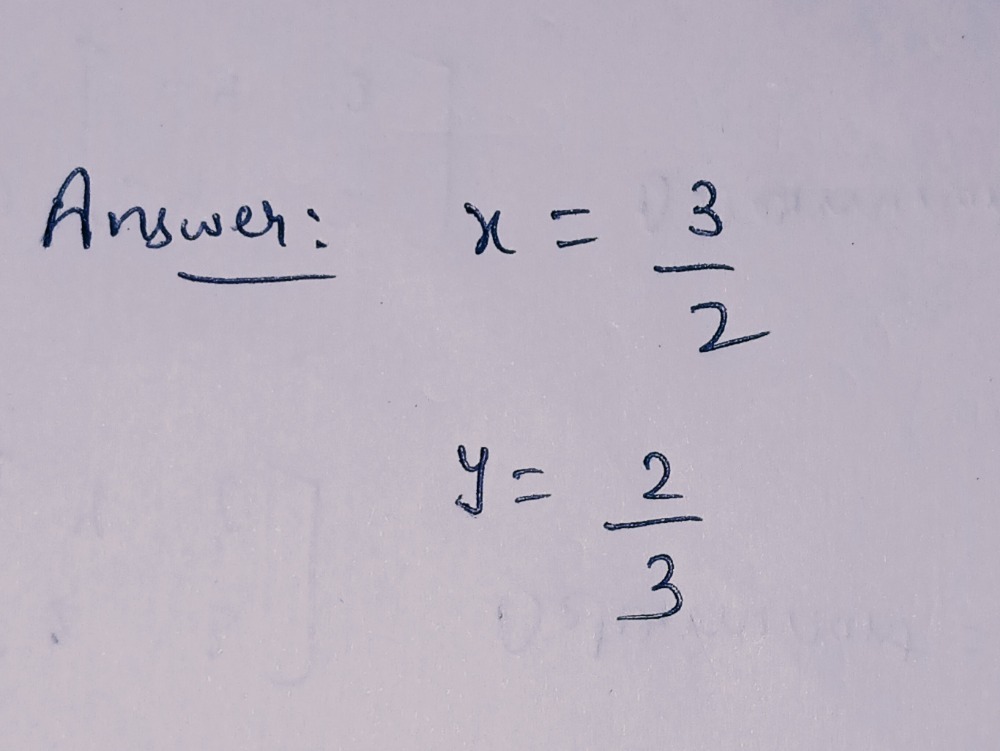 Answer: x = 3/2
y = 2/3